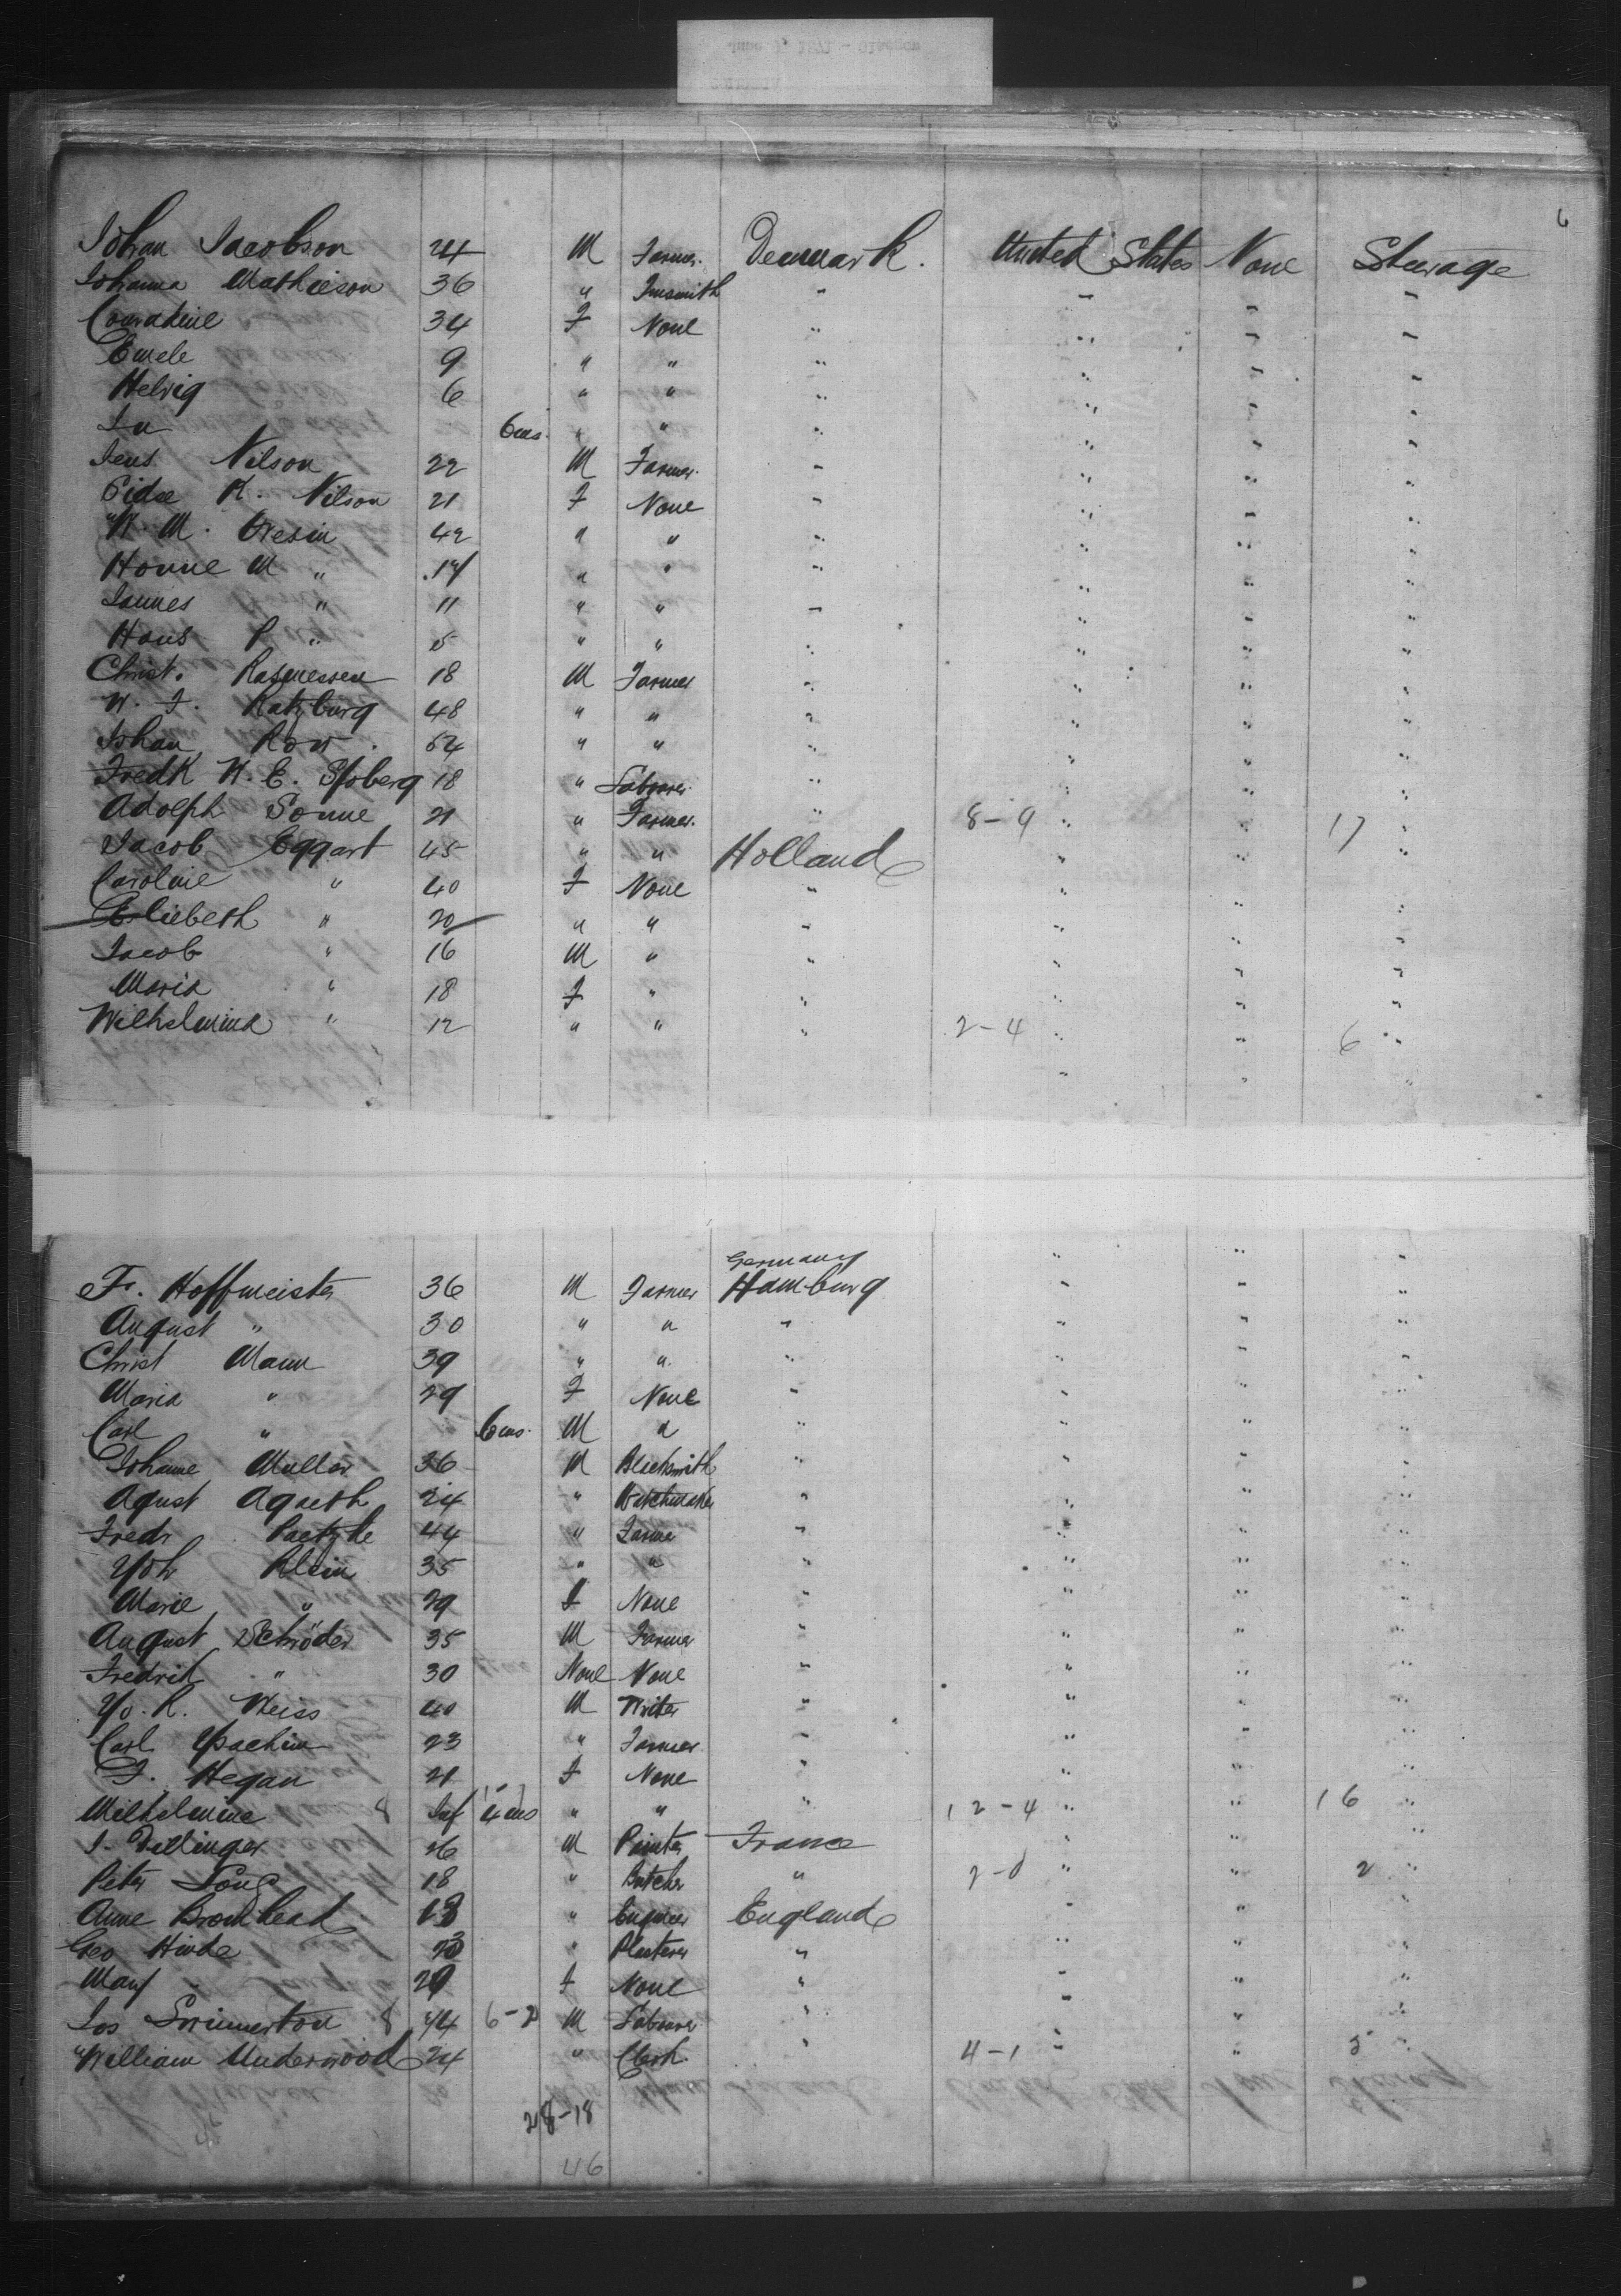 6
Johan Jacobson 24 M Farmer. Denmark. United States None Steerage
Johanna Mathieson 36 " Tinsmith " " " "
Conradine 34 F None " " " "
Emele 9 " " " " " "
Helvig 6 " " " " " "
6ms. " " " " " "
Jens Nilson 22 M Farmer. " " " "
K. Nilson 21 F None " " " "
M. 42 " " " " " "
M " 14 " " " " " "
Jannes " 11 " " " " " "
Hans P " 5 " " " " " "
Christ. Rasmessen 18 M Farmer " " " "
Ratzburg 48 " " " " " "
Johan 54 " " " " " "
Fredk W. E. 18 " Laborer " " " "
Adolph Sonne 21 " Farmer. " 8-9 " " 17 "
Jacob Eggart 45 " " Holland " " "
Caroline " 40 F None " " " "
Esliebeth " 20 " " " " " "
Jacob " 16 M " " " " "
Maria " 18 F " " " " "
Wilhelmina " 12 " " " 2-4 " " 6 "
Germany
F. Hoffmeister 36 M Farmer Hamburg " " "
August " 30 " " " " " "
Christ Mann 39 " " " " " "
Maria " 29 F None " " " "
Carl " 6ms. M " " " " "
Johanne Mullar 36 M Blacksmith " " " "
Agust Agaeth 24 " Watchmaker " " " "
Fredr 44 " Farmer " " " "
Yoh Klein 35 " " " " " "
Marie " 29 F None " " " "
August Schröder 35 M Farmer " " " "
Fredrik " 30 None None " " " "
Yo. R. Weiss 40 M Writer " " " "
Carl Yoachim 23 " Farmer " " " "
F. Hegan 21 F None " " " "
Wilhelmine 8 Inf 4ms " " " 12-4 " " 16 "
J. Dillinger 26 M Painter France " " "
Peter Long 18 " Butcher " 2-0 " " 2 "
Anne Broadhead 18 " Engineer England " " "
Geo Hinde 23 " Plasterer " " " "
Mary " 29 F None " " " "
Jos Swinnerton 8 44 6-2 M Laborer " " " "
William Underwood 24 " Clerk. " 4-1 " " 5 "
28-18
46